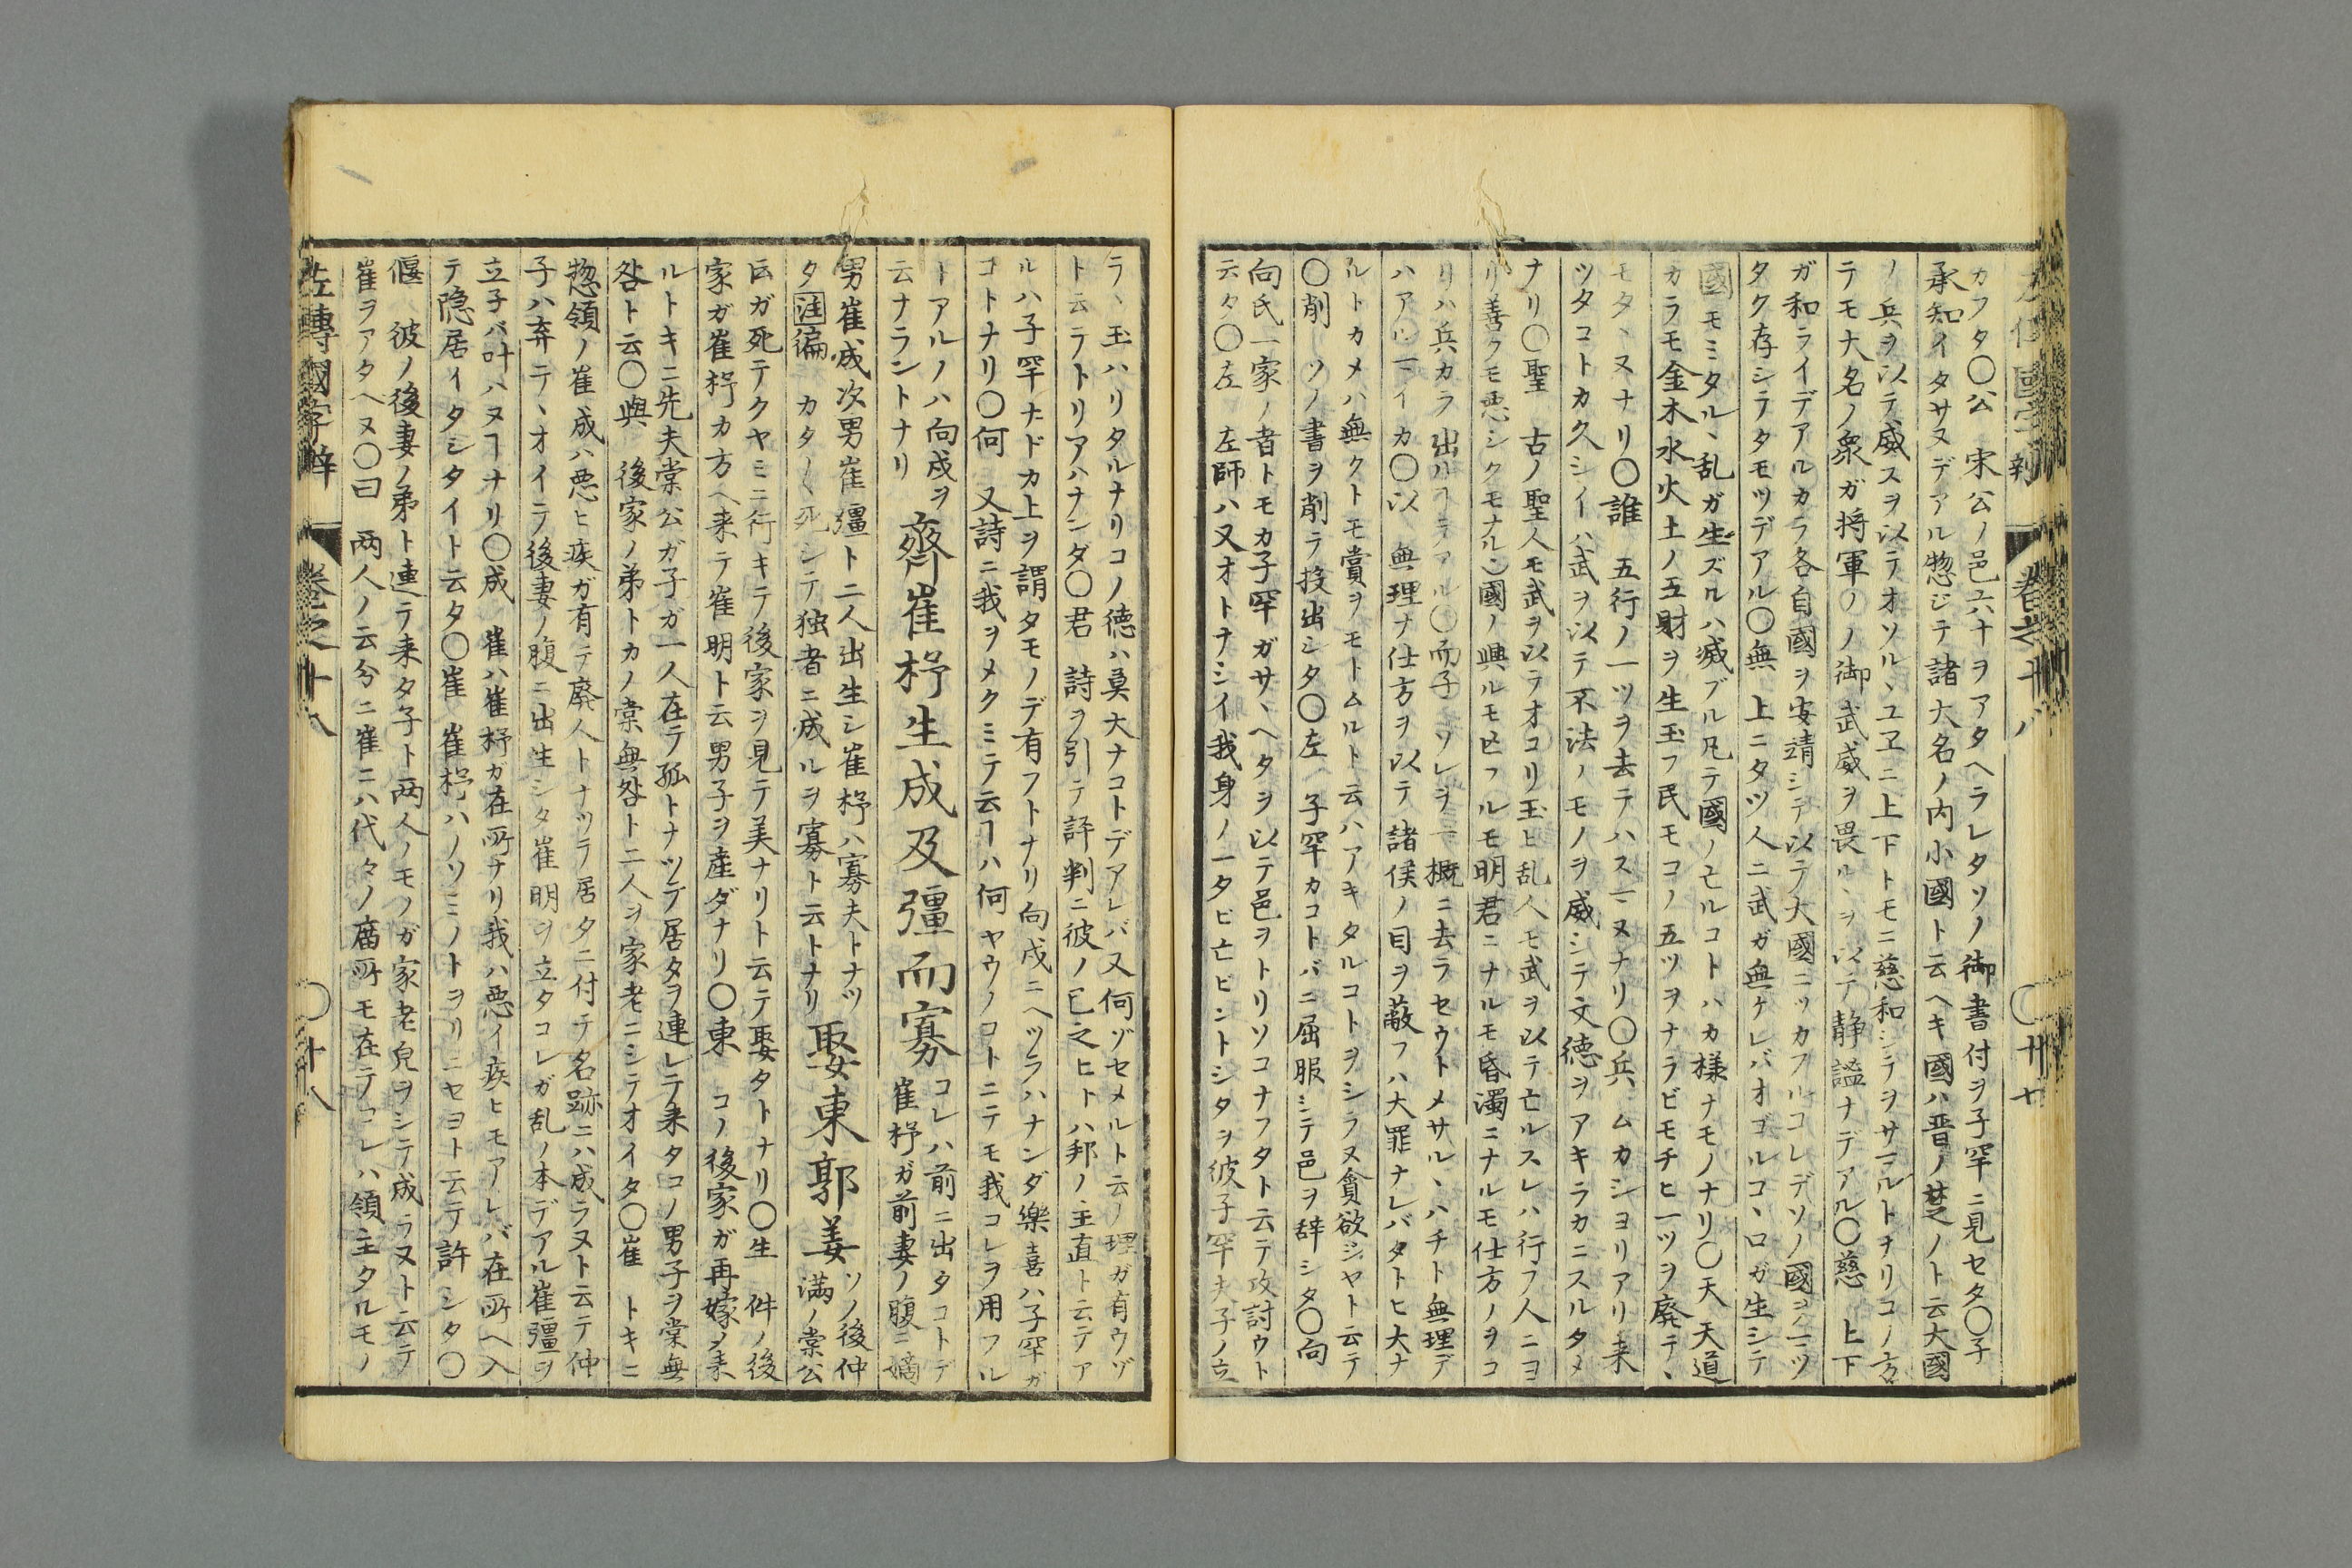 左傳國字辯 巻之十八 〇廿七
カフタ〇公 宋公ノ邑六十ヲアタヘラレタソノ御書付ヲ子罕ニ見セタ〇子
承知イタサヌデアル惣ジテ諸大名ノ内小國ト云ヘキ國ハ晋ノ楚ノト云大國
ノ兵ヲ以テ威スヲ以テオソルヽユヱニ上下トモニ慈和シテヲサマルトナリコノ方
ラモ大名ノ衆ガ将軍ノノ御武威ヲ畏ルヽヲ以テ静謐ナデアル〇慈 上下
ガ和ライデアルカラ各自國ヲ安靖シテ以テ大國ニツカフルコレデソノ國ヲマツ
タク存シテタモツデアル〇無 上ニタツ人ニ武ガ無ケレバオゴルコヽロガ生シテ
國モミタルヽ乱ガ生ズルハ滅ブル凡テ國ノ亡ルコトハカ様ナモノナリ〇天 天道
カラモ金木水火土ノ五財ヲ生玉フ民モコノ五ツヲナラビモチヒ一ツヲ廃テヽ
モタヽヌナリ〇誰 五行ノ一ツヲ去テハスマヌナリ〇兵 ムカシヨリアリ来
ツタコトカ久シイハ武ヲ以テ不法ノモノヲ威シテ文徳ヲアキラカニスルタメ
ナリ〇聖 古ノ聖人モ武ヲ以テオコリ玉ヒ乱人モ武ヲ以テ亡ルスレハ行フ人ニヨ
リ善クモ悪シクモナルヿ國ノ興ルモ亡フルモ明君ニナルモ昏濁ニナルモ仕方ノヲコ
リハ兵カラ出ルヿテアル〇而子 ソレヲ一概ニ去ラセウトメサルヽハチト無理デ
ハアルマイカ〇以 無理ナ仕方ヲ以テ諸侯ノ目ヲ蔽フハ大罪ナレバタトヒ大ナ
ルトカメハ無クトモ賞ヲモトムルト云ハアキタルコトヲシラヌ貪欲ジヤト云テ
〇削 ソノ書ヲ削テ投出シタ〇左 子罕カコトバニ屈服シテ邑ヲ辞シタ〇向
向氏一家ノ者トモカ子罕ガサヽヘタヲ以テ邑ヲトリソコナフタト云テ攻討ウト
云タ〇左 左師ハ又オトナシイ我身ノ一タビ亡ビントシタヲ彼子罕夫子ノ立
ラヽ玉ハリタルナリコノ徳ハ莫大ナコトデアレバ又何ゾセメルト云ノ理ガ有ウゾ
ト云ラトリアハナンダ〇君 詩ヲ引テ評判ニ彼ノ已之ヒトハ邦ノ主直ト云テア
ルハ子罕ナドカ上ヲ謂タモノデ有フトナリ向戌ニヘツラハナンダ樂喜ハ子罕ガ
コトナリ〇何 又詩ニ我ヲメクミテ云ヿハ何ヤウノコトニテモ我コレヲ用フル
トアルノハ向戌ヲ
云ナラントナリ
齊崔杼生成及彊而寡
コレハ前ニ出タコトデ
崔杼ガ前妻ノ腹ニ嫡
男崔成次男崔彊ト二人出生シ崔杼ハ寡夫トナツ
タ 注 偏 カタ〱死シテ独者ニ成ルヲ寡ト云トナリ
娶東郭姜
ソノ後仲
満ノ棠公
云ガ死テクヤミニ行キテ後家ヲ見テ美ナリト云テ娶タトナリ〇生 件ノ後
家ガ崔杼カ方ヘ来テ崔明ト云男子ヲ産ダナリ〇東 コノ後家ガ再嫁ノ来
ルトキニ先夫棠公ガ子ガ一人在テ孤トナツテ居タヲ連レテ来タコノ男子ヲ棠無
咎ト云〇與 後家ノ弟トカノ棠無咎ト二人ヲ家老ニシテオイタ〇崔 トキニ
惣領ノ崔成ハ悪ヒ疾ガ有テ廃人トナツラ居タニ付テ名跡ニハ成ラヌト云テ仲
子ハ弃テヽオイテ後妻ノ腹ニ出生シタ崔明ヲ立タコレガ乱ノ本デアル崔彊ヲ
立子バ叶ハヌヿナリ〇成 崔ハ崔杼ガ在所ナリ我ハ悪イ疾ヒモアレバ在所ヘ入
テ隠居イタシタイト云タ〇崔 崔杼ハノソミノトヲリニセヨト云テ許シタ〇
偃 彼ノ後妻ノ弟ト連テ来タ子ト两人ノモノガ家老皃ヲシテ成ラヌト云テ
崔ヲアタヘヌ〇曰 两人ノ云分ニ崔ニハ代々ノ廟所モ在テコレハ領主タルモノ
左傳國字辯 巻之十八 〇廿八